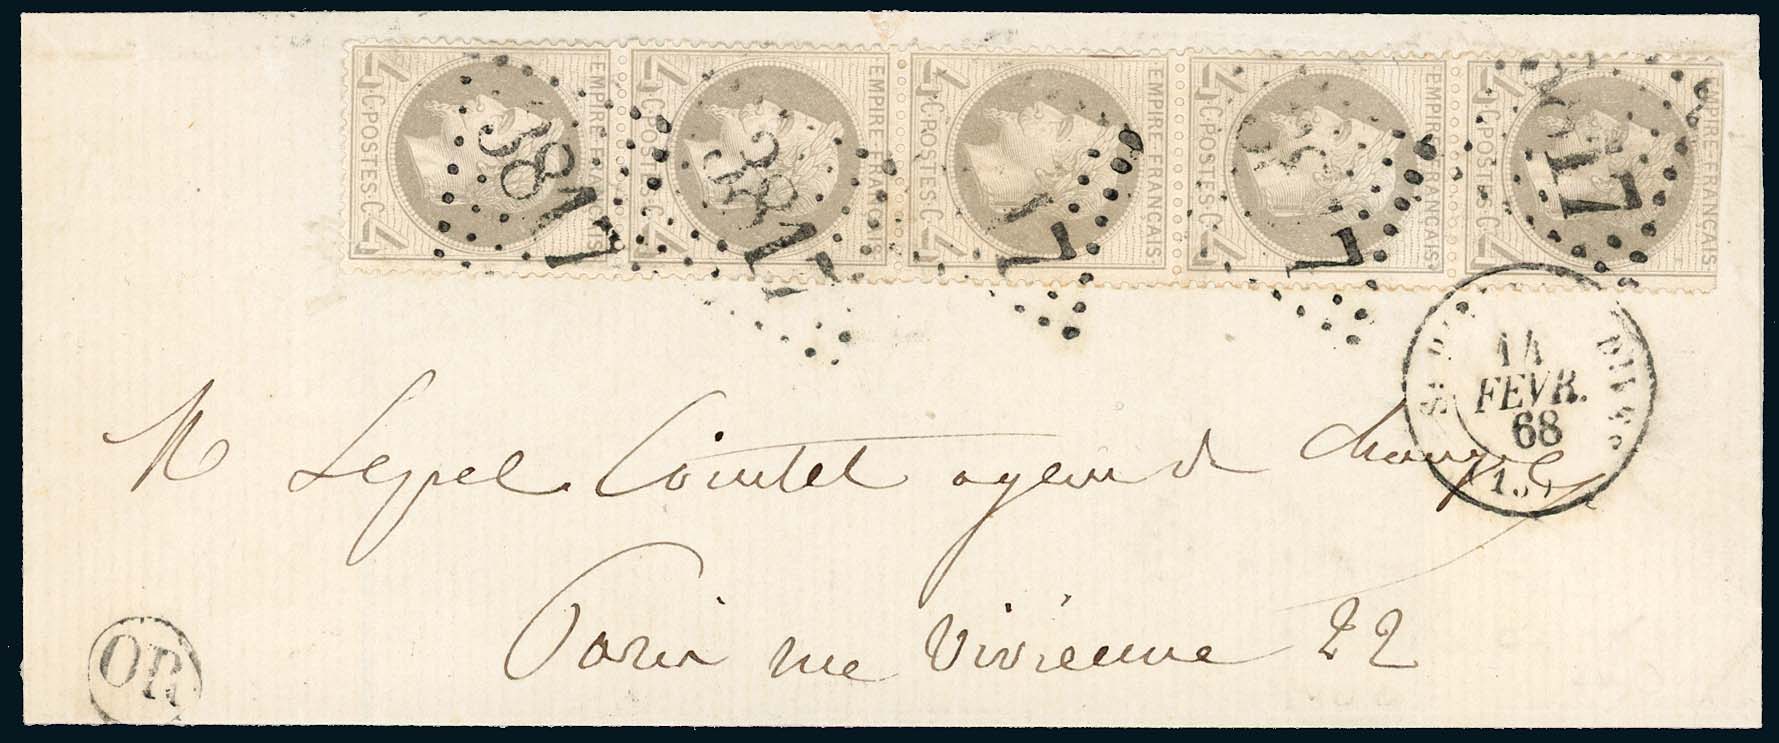 4 C. POSTES C. 4 EMPIRE FRANÇAIS
4 C. POSTES C. 4 EMPIRE FRANÇAIS
4 C. POSTES C. 4 EMPIRE FRANÇAIS
4 C. POSTES C. 4 EMPIRE FRANÇAIS
4 C. POSTES C. 4 EMPIRE FRANÇAIS
3817
3817
7
3 7
7
14
FEVR.
68
M Lepel Cointet agent de change
Paris rue Vivienne 22
OR